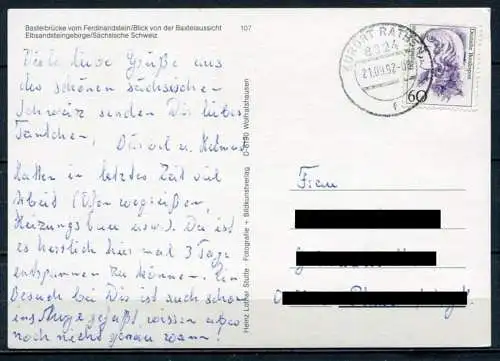 Basteibrücke vom Ferdinandstein/Blick von der Basteiaussicht 107
Elbsandsteingebirge/Sächsische Schweiz
Viele liebe Grüße aus
der schönen sächsischen
Schweiz senden Dir liebes
Tantchen, und Helmut
Hatten in letzter Zeit viel
Arbeit (Öfen wegreißen,
Heizungsbau usw). Da ist
es herrlich hier mal 3 Tage
entspannen zu können. Ein
Besuch bei Dir ist auch schon
ins Auge gefaßt, wissen aber
noch nicht genau wann!
Heinz Lothar Stutte · Fotografie + Bildkunstverlag D-8190 Wolfratshausen
KURORT RATHEN
8324
21.09.92
Deutsche Bundespost
60
Frau